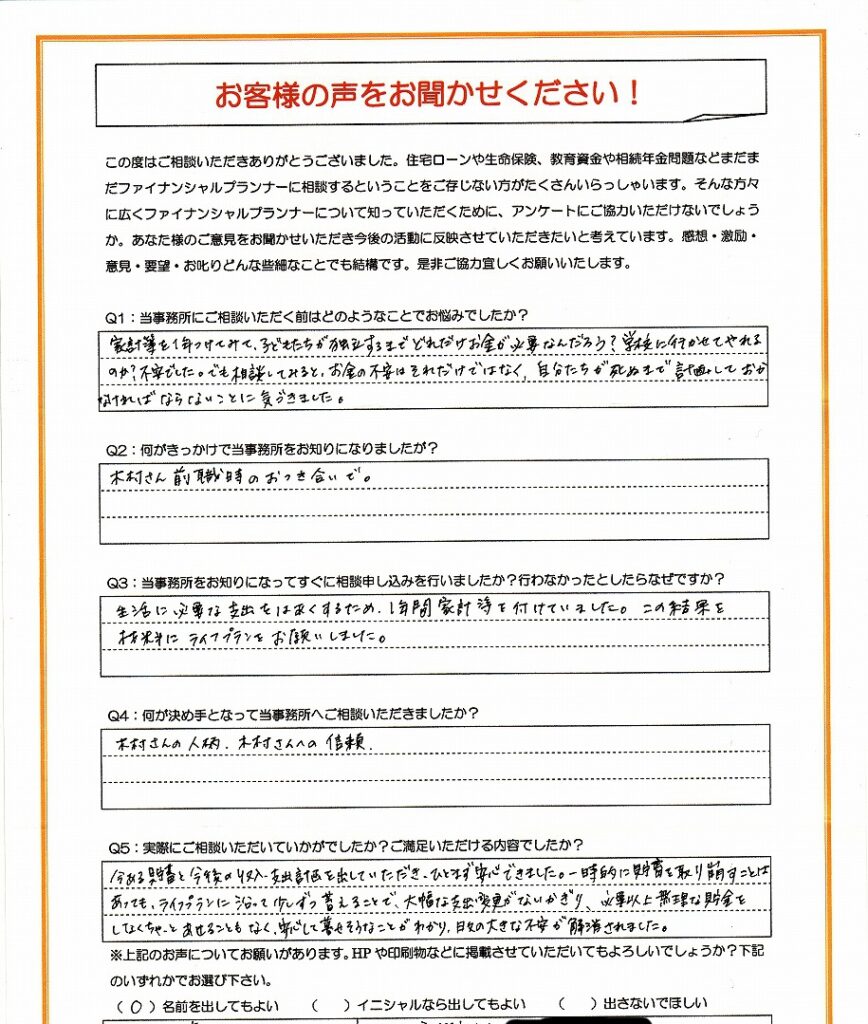 お客様の声をお聞かせください！
この度はご相談いただきありがとうございました。住宅ローンや生命保険、教育資金や相続年金問題などまだま
だファイナンシャルプランナーに相談するということをご存じない方がたくさんいらっしゃいます。そんな方々
に広くファイナンシャルプランナーについて知っていただくために、アンケートにご協力いただけないでしょう
か。あなた様のご意見をお聞かせいただき今後の活動に反映させていただきたいと考えています。感想・激励・
意見・要望・お叱りどんな些細なことでも結構です。是非ご協力宜しくお願いいたします。
Q1：当事務所にご相談いただく前はどのようなことでお悩みでしたか？
家計簿を1年つけてみて、子どもたちが独立するまでどれだけお金が必要なんだろう？学校に行かせてやれる
のか？不安でした。でも相談してみると、お金の不安はそれだけではなく、自分たちが死ぬまで計画しておか
なければならないことに気づきました。
Q2：何がきっかけで当事務所をお知りになりましたか？
木村さん前職時のおつき合いで。
Q3：当事務所をお知りになってすぐに相談申し込みを行いましたか？行わなかったとしたらなぜですか？
生活に必要な支出をはあくするため、1年間家計簿を付けていました。この結果を
材料にライフプランをお願いしました。
Q4：何が決め手となって当事務所へご相談いただきましたか？
木村さんの人柄．木村さんへの信頼．
Q5：実際にご相談いただいていかがでしたか？ご満足いただける内容でしたか？
今ある貯蓄と今後の収入・支出計画を出していただき、ひとまず安心できました。一時的に貯蓄を取り崩すことは
あっても、ライフプランに沿って少しずつ蓄えることで、大幅な支出変更がないかぎり、必要以上無理な貯金を
しなくちゃーとあせることもなく、安心して暮せそうなことがわかり、日々の大きな不安が解消されました。
※上記のお声についてお願いがあります。HPや印刷物などに掲載させていただいてもよろしいでしょうか？下記
のいずれかでお選び下さい。
（ ○ ）名前を出してもよい （ ）イニシャルなら出してもよい （ ）出さないでほしい